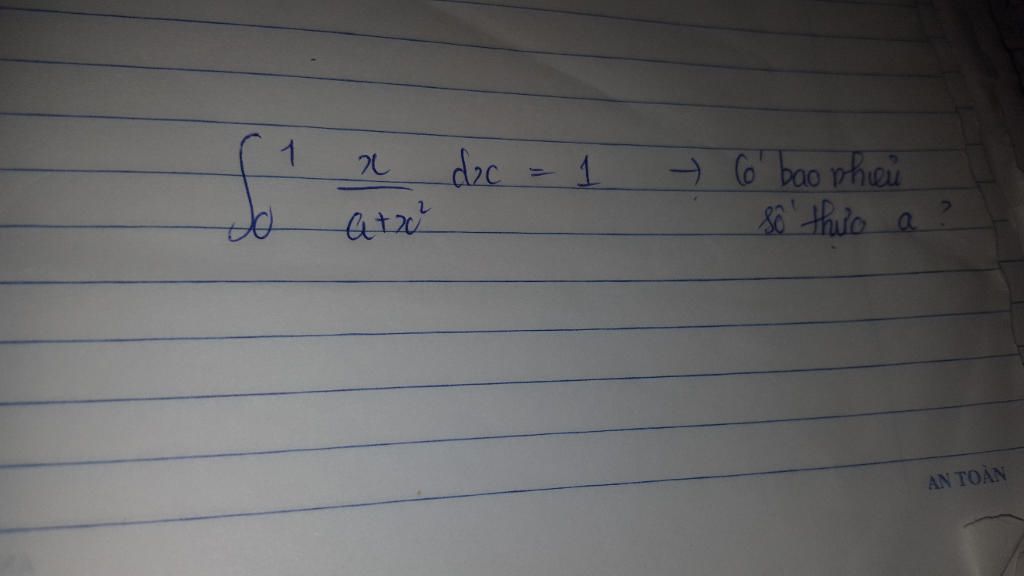 ∫₀¹ x/(a+x²) dx = 1 → Có bao nhiêu
số thực a?
AN TOÀN